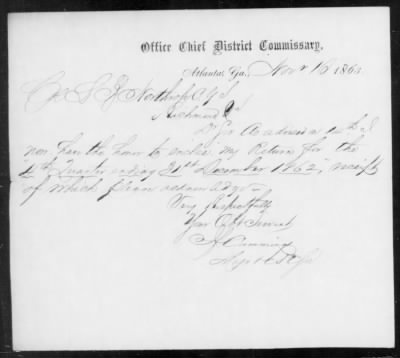 Office Chief District Commissary,
Atlanta, Ga., Nov 16 1863
Col. Northrop C.G.S
Richmond Va
I
now have the honor to enclose my Return for the
4th Quarter ending 31st December 1862, receipt
of which please acknowledge
Very Respectfully
Your Obt Servt
J Cumming
Maj &